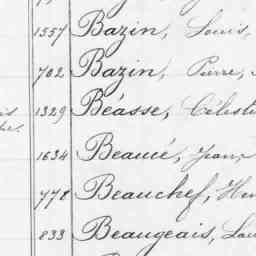 1557 Bazin, Louis,
702 Bazin, Pierre,
1329 Béasse, Célesti
1634 Beaucé, Jean
778 Beauchef, Hen
833 Beaugeais, Lou